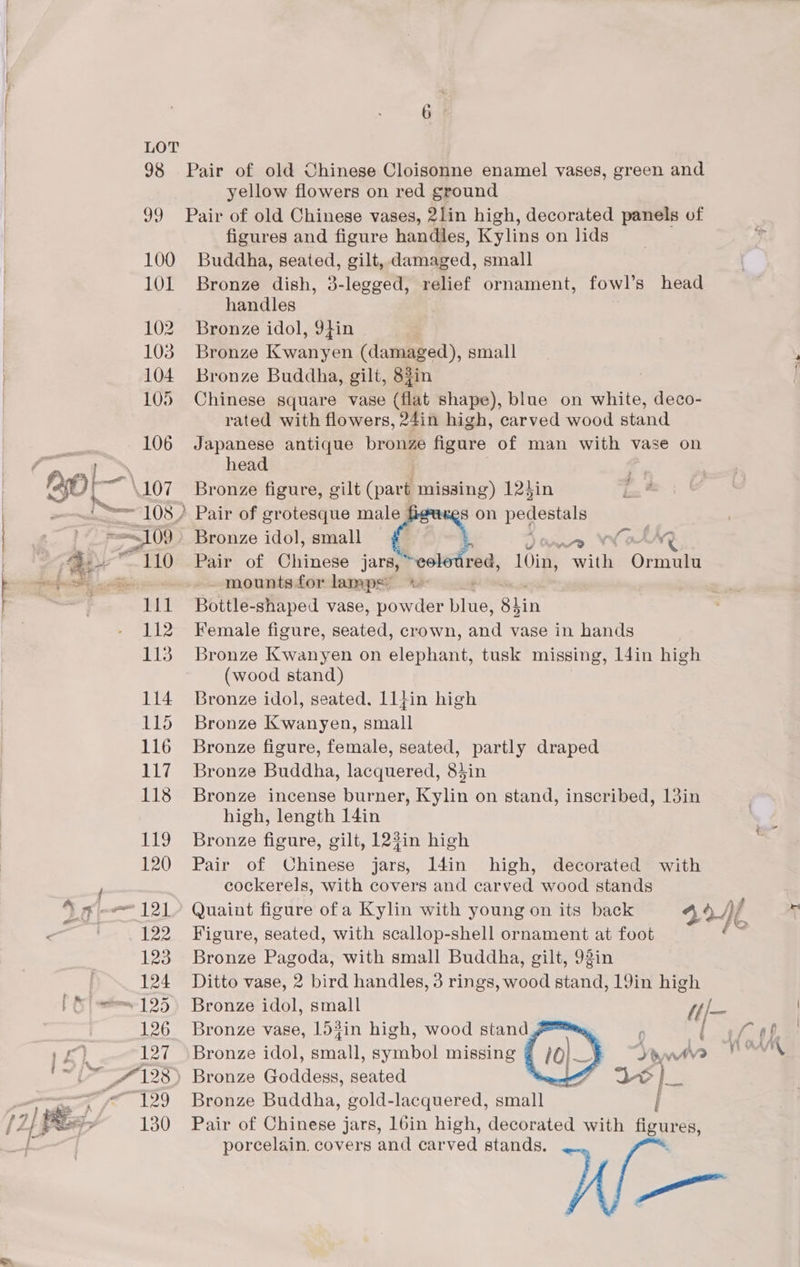 6
LOT
98 Pair of old Chinese Cloisonne enamel vases, green and
yellow flowers on red ground
99 Pair of old Chinese vases, 21in high, decorated panels of
figures and figure handles, Kylins on lids
100 Buddha, seated, gilt, damaged, small
101 Bronze dish, 3-legged, relief ornament, fowl's head
handles
102 Bronze idol, 9¼in
103 Bronze Kwanyen (damaged), small
104 Bronze Buddha, gilt, 8¾in
105 Chinese square vase (flat shape), blue on white, deco-
rated with flowers, 24in high, carved wood stand
106 Japanese antique bronze figure of man with vase on
head
107 Bronze figure, gilt (part missing) 12½in
108 Pair of grotesque male figures on pedestals
109 Bronze idol, small
110 Pair of Chinese jars, coloured, 10in, with Ormulu
mounts for lamps
111 Bottle-shaped vase, powder blue, 8½in
112 Female figure, seated, crown, and vase in hands
113 Bronze Kwanyen on elephant, tusk missing, 14in high
(wood stand)
114 Bronze idol, seated. 11¼in high
115 Bronze Kwanyen, small
116 Bronze figure, female, seated, partly draped
117 Bronze Buddha, lacquered, 8½in
118 Bronze incense burner, Kylin on stand, inscribed, 13in
high, length 14in
119 Bronze figure, gilt, 12¾in high
120 Pair of Chinese jars, 14in high, decorated with
cockerels, with covers and carved wood stands
121 Quaint figure of a Kylin with young on its back
122 Figure, seated, with scallop-shell ornament at foot
123 Bronze Pagoda, with small Buddha, gilt, 9¾in
124 Ditto vase, 2 bird handles, 3 rings, wood stand, 19in high
125 Bronze idol, small
126 Bronze vase, 15¾in high, wood stand
127 Bronze idol, small, symbol missing 10/-
128 Bronze Goddess, seated
129 Bronze Buddha, gold-lacquered, small
130 Pair of Chinese jars, 16in high, decorated with figures,
porcelain covers and carved stands.